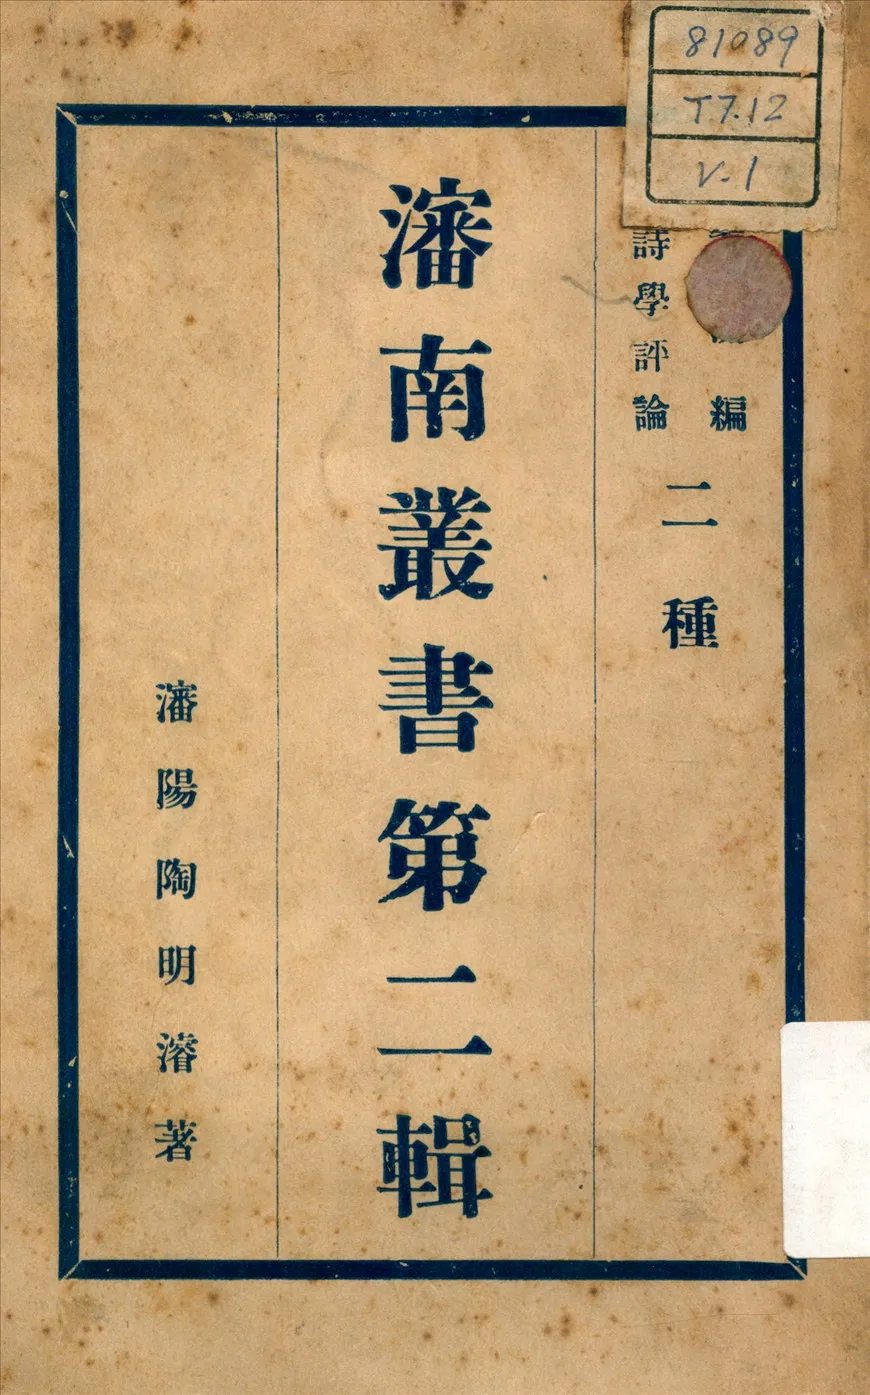 81089
T7.12
V.1
編
詩學評論
二種
瀋南叢書第二輯
瀋陽陶明濬著